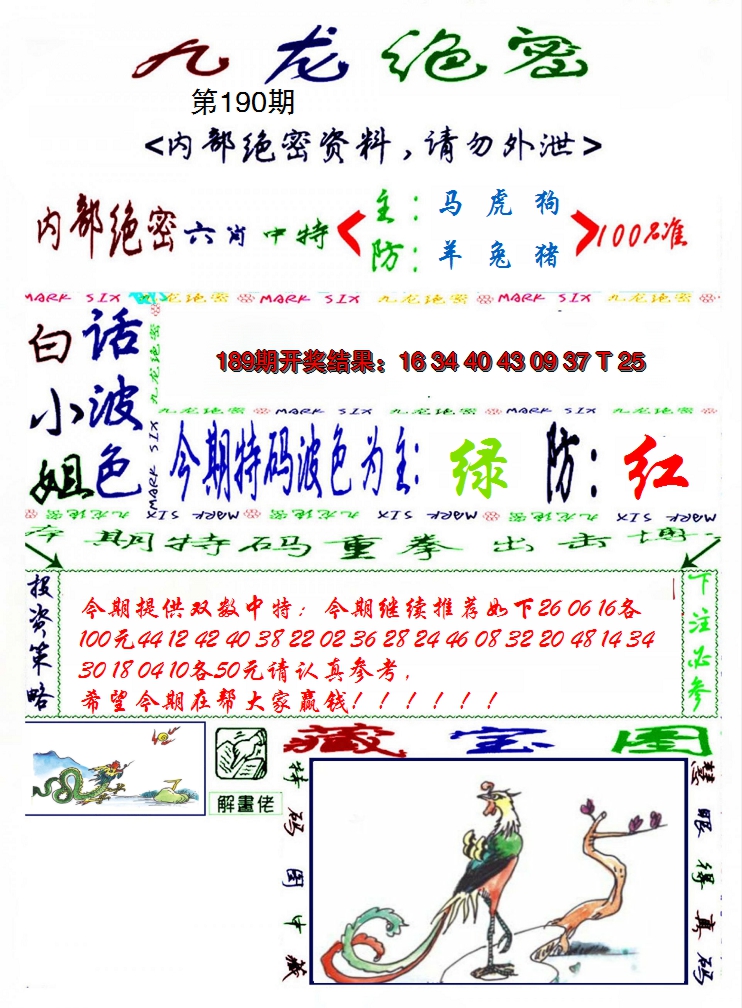 九龙绝密
第190期
<内部绝密资料,请勿外泄>
内部绝密六肖中特
主:马虎狗
防:羊兔猪
100%准
MARK SIX 九龙绝密 MARK SIX 九龙绝密 MARK SIX 九龙绝密
白小姐
话波色
189期开奖结果:16 34 40 43 09 37 T 25
九龙绝密 MARK SIX 九龙绝密 MARK SIX 九龙绝密
今期特码波色为主:绿 防:红
MARK SIX 九龙绝密 MARK SIX 九龙绝密 MARK SIX 九龙绝密
期特码重拳出击
投资策略
今期提供双数中特:今期继续推荐如下26 06 16各
100元44 12 42 40 38 22 02 36 28 24 46 08 32 20 48 14 34
30 18 04 10各50元请认真参考,
希望今期在帮大家赢钱!!!!!!
下注必参
解畫佬
藏宝图
特码图中藏
慧眼得真码